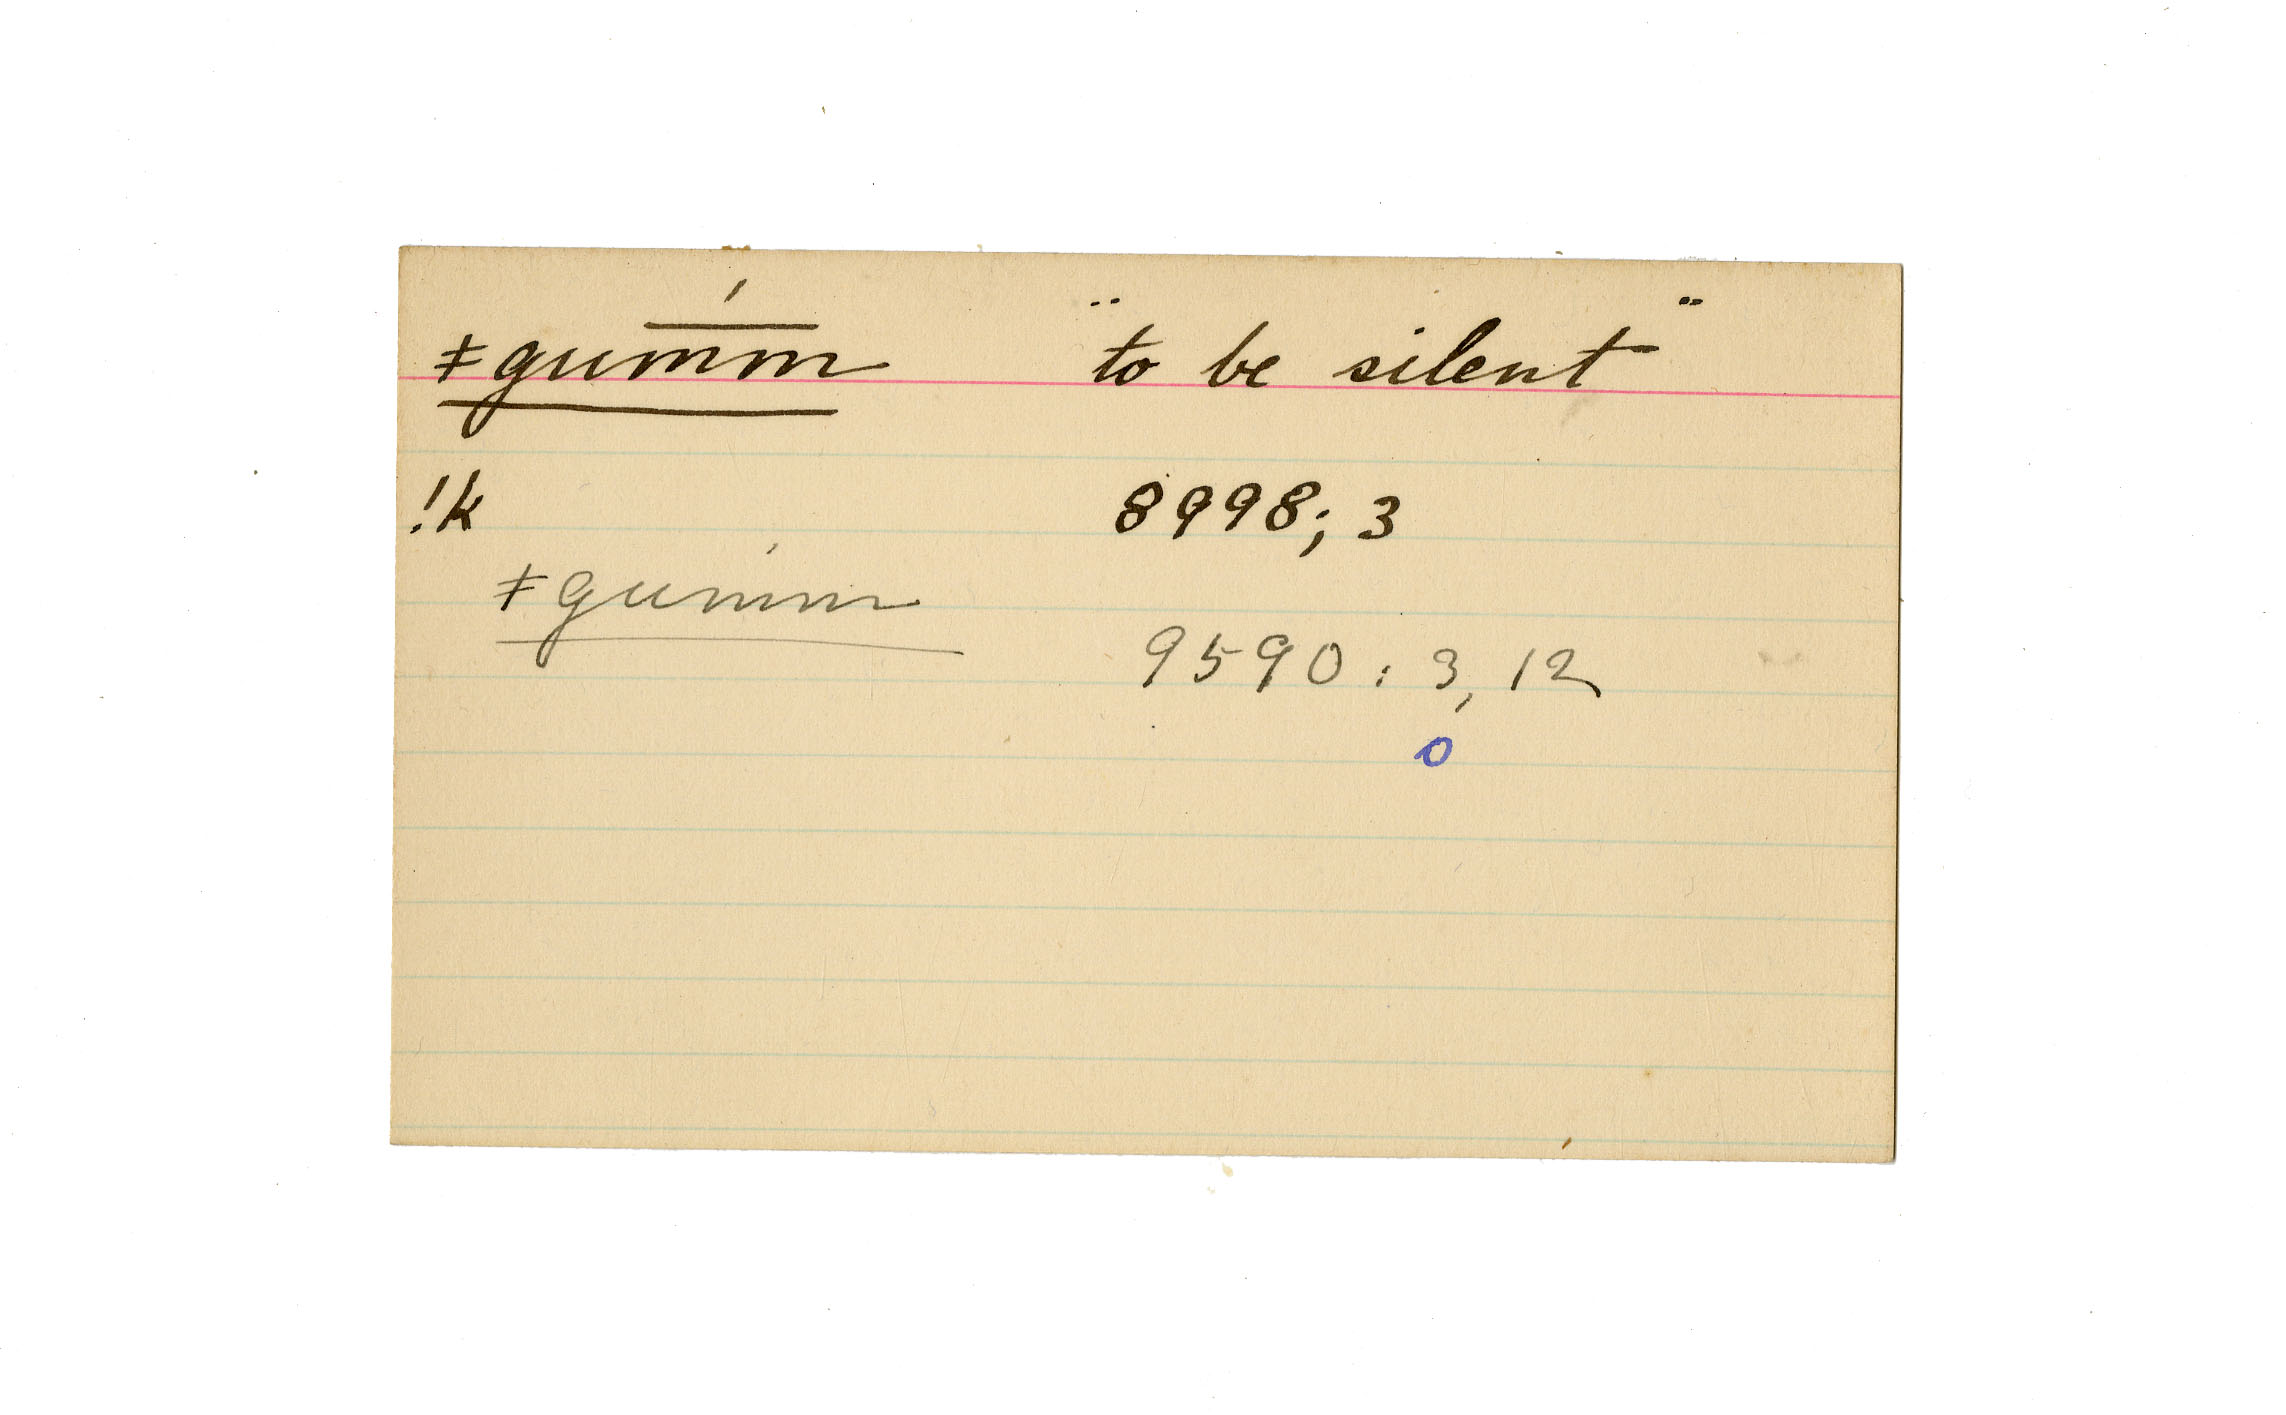 ǂgumm̅́ "to be silent"
!k 8998; 3
ǂgumḿ
9590: 3, 12
o